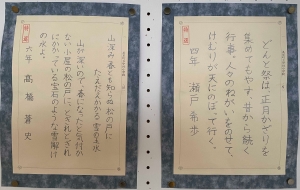 どんと祭は、正月かざりを
集めてもやす。昔から続く
行事。人々のねがいをのせて、
けむりが天にのぼって行く。
四年 瀬戸 希歩
特選
山深み春とも知らぬ松の戸に
たえだえかかる雪の玉水
山が深いので、春になったと気付か
ない小屋の松の戸に、とぎれとぎれ
にかかっている宝石のような雪解け
の水よ。
六年 髙橋 蒼史
特選